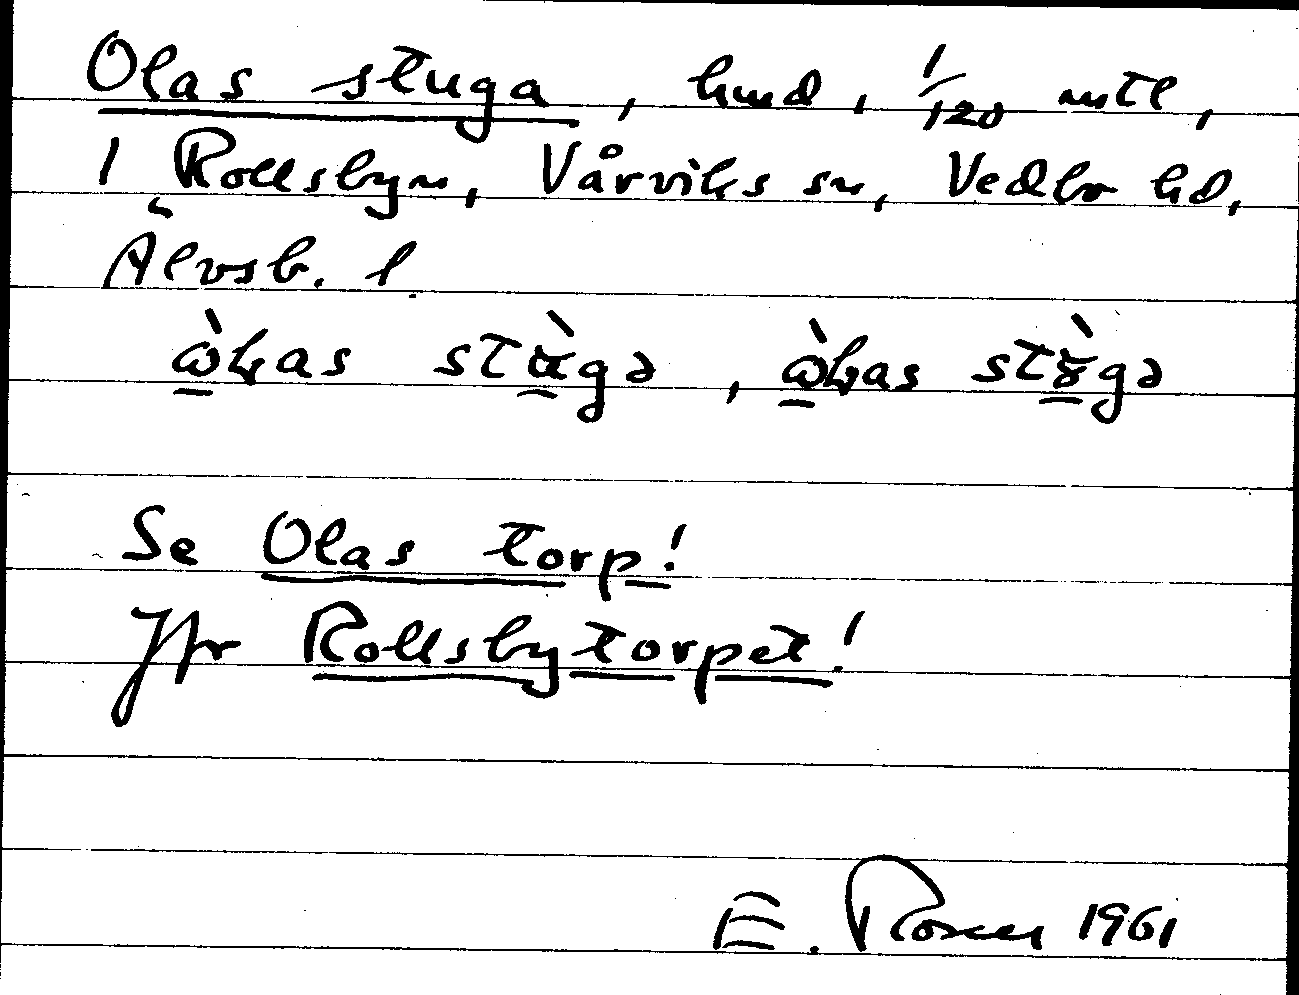 Olas stuga, hmd, 1/120 mtl,
i Rollsbyn, Vårviks sn, Vedbo hd,
Älvsb. l.
Se Olas torp!
Jfr Rollsbytorpet!
E. Rosell 1961